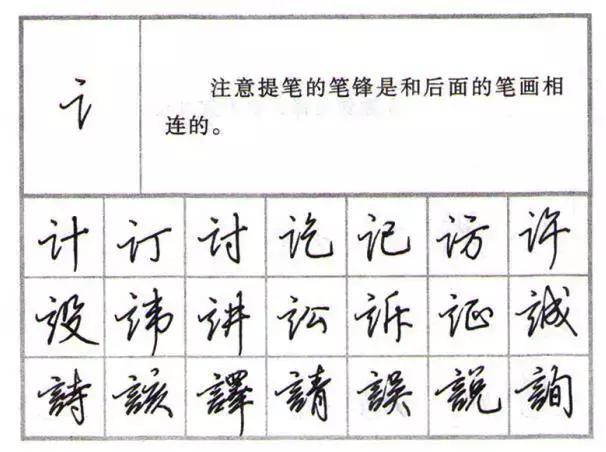 讠
注意提笔的笔锋是和后面的笔画相
连的。
计 订 讨 讫 记 访 许
设 讳 讲 讼 诉 证 诚
詩 該 譯 請 誤 説 詢